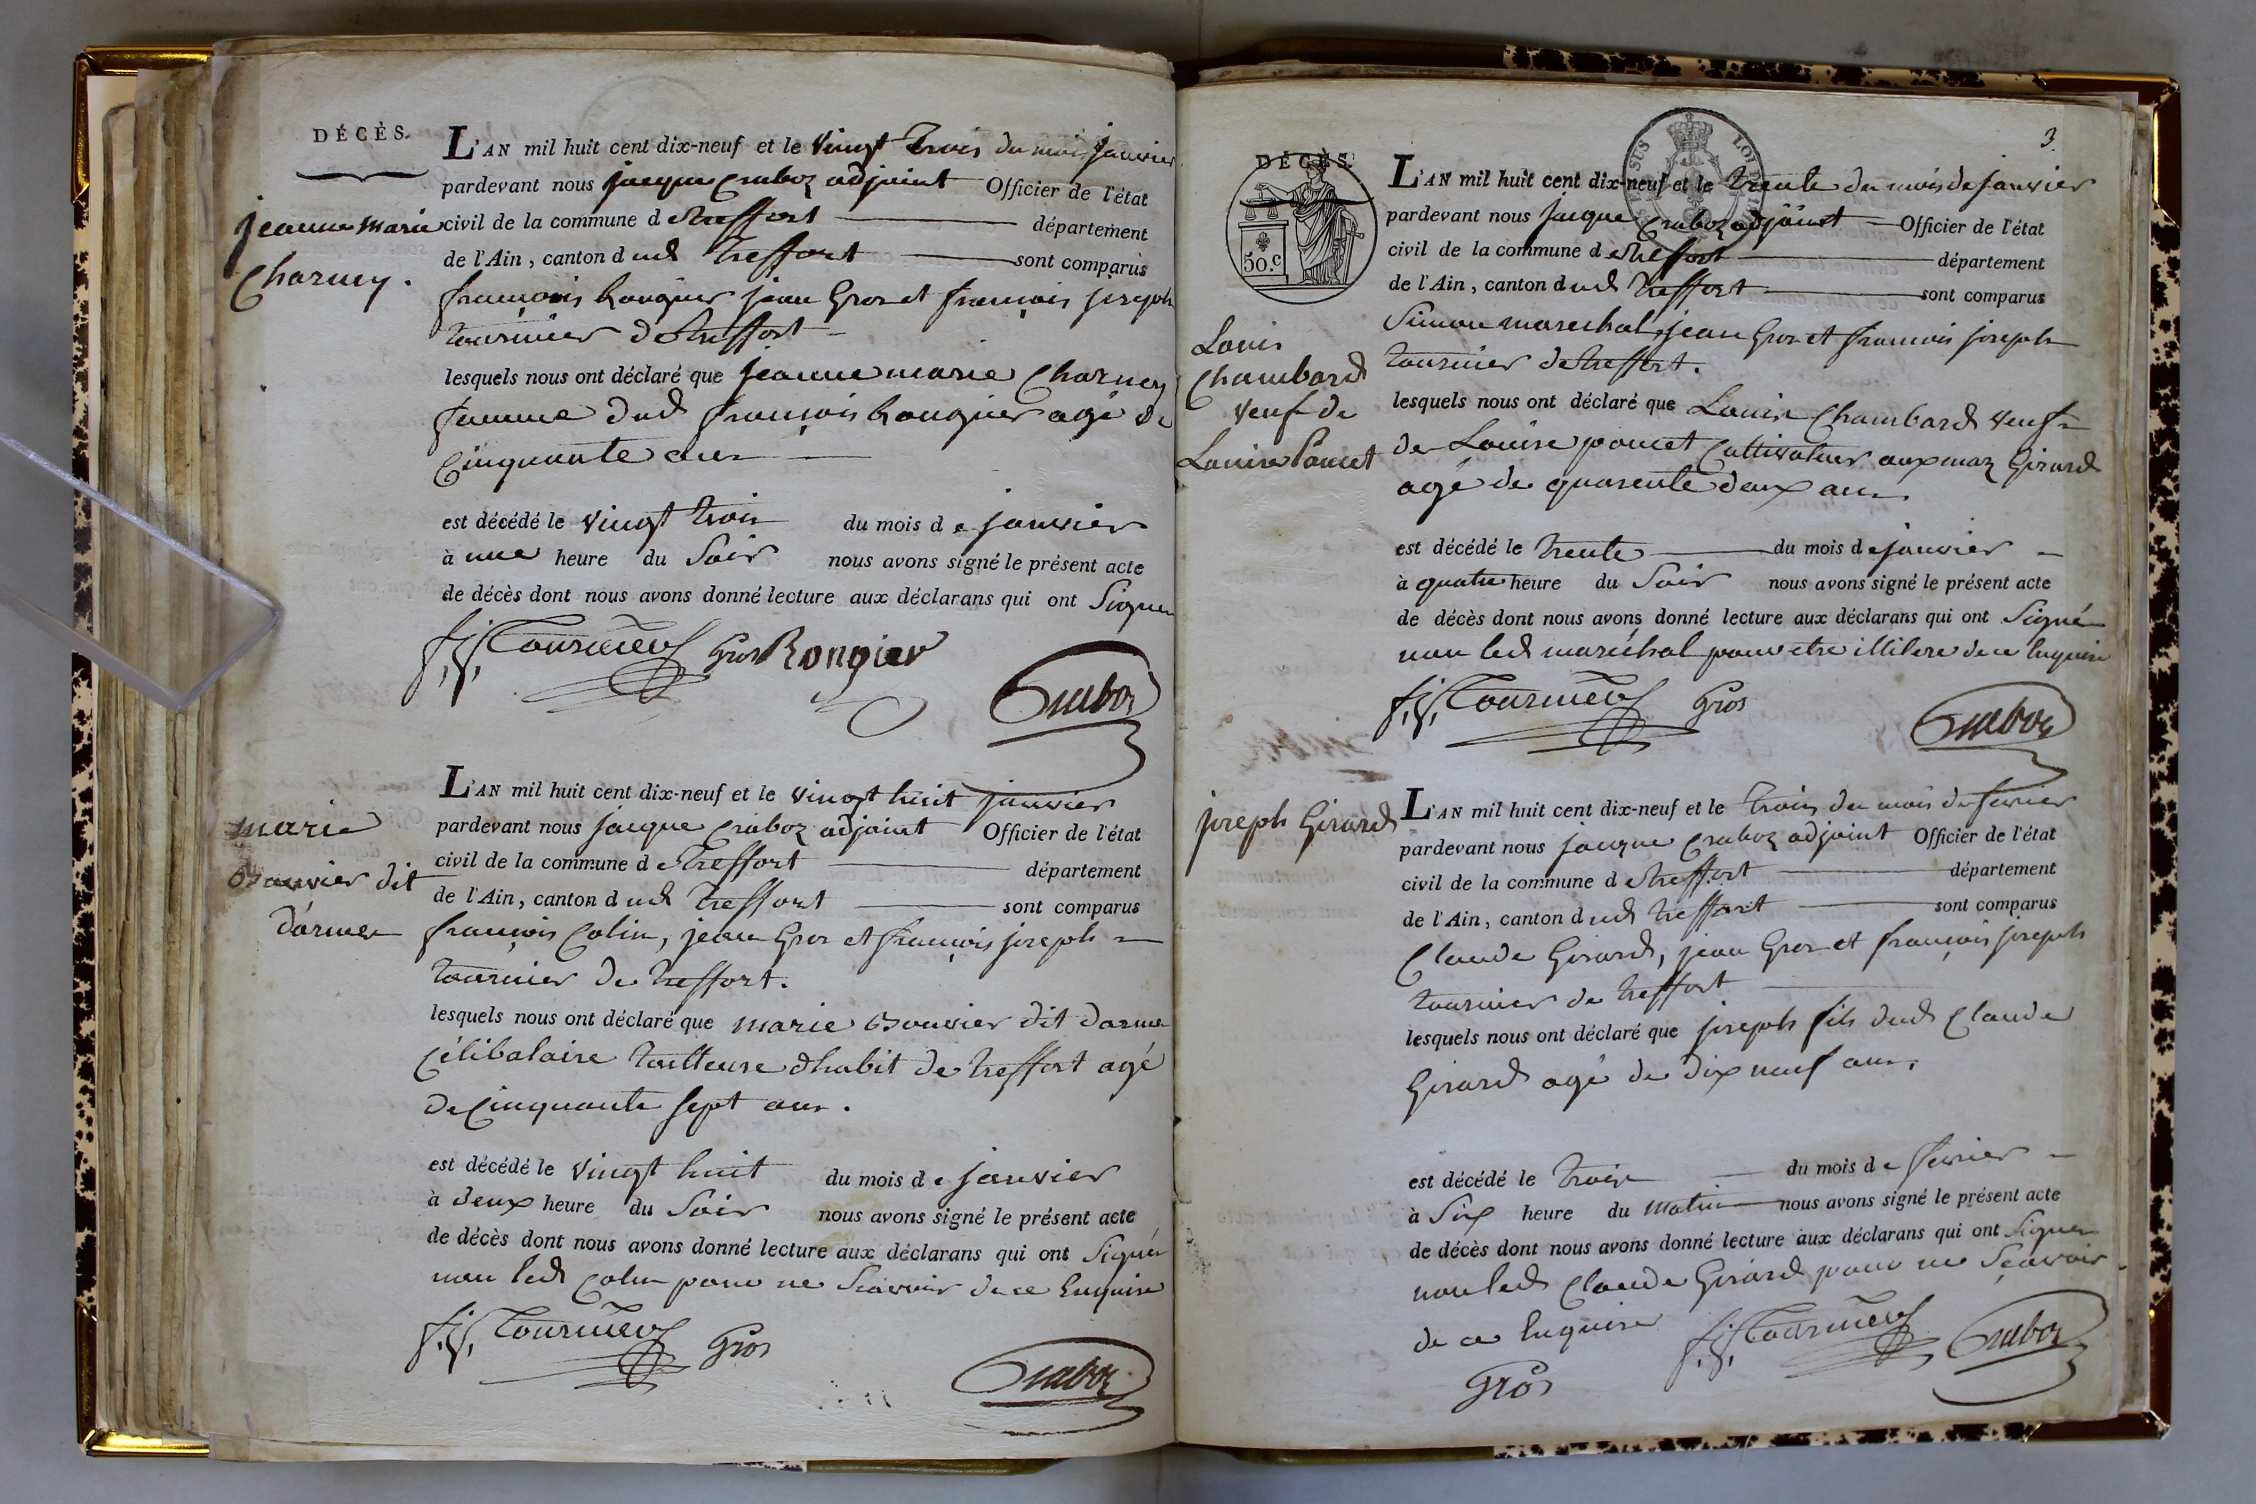 DÉCÈS.
L'AN mil huit cent dix-neuf et le vingt trois du mois janvier
pardevant nous jacque Craboz adjoint Officier de l'état
jeanne marie civil de la commune d etreffort département
Charney. de l'Ain, canton dud treffort sont comparus
françois Rougier jean Gros et françois joseph
tournier detreffort
lesquels nous ont déclaré que jeanne marie Charney
femme dud françois Rougier agé de
Cinquante ans
est décédé le vingt trois du mois d e janvier
à une heure du Soir nous avons signé le présent acte
de décès dont nous avons donné lecture aux déclarans qui ont Signés
f. j. Tournier Gros Rongier
Craboz
L'AN mil huit cent dix-neuf et le vingt huit janvier
marie pardevant nous jacque Craboz adjoint Officier de l'état
Bouvier dit civil de la commune d etreffort département
de l'Ain, canton dud treffort sont comparus
darmes françois Colin, jean Gros et françois joseph
tournier de treffort.
lesquels nous ont déclaré que marie Bouvier dit darmes
Célibataire tailleuse dhabit de treffort agé
de Cinquante sept ans.
est décédé le vingt huit du mois d e janvier
à deux heure du Soir nous avons signé le présent acte
de décès dont nous avons donné lecture aux déclarans qui ont Signés
non led Colin pour ne Scavoir de ce Enquise
f. j. Tournier Gros
Craboz
3.
DÉCÈS.
50.c
L'AN mil huit cent dix-neuf et le trente du mois de janvier
pardevant nous jacque Craboz adjoint Officier de l'état
civil de la commune d etreffort département
de l'Ain, canton dud treffort sont comparus
Simon mareschal, jean Gros et françois joseph
Louis
Chambard
veuf de
Louise Poncet
tournier detreffort.
lesquels nous ont déclaré que Louis Chambard veuf
de Louise poncet Cultivateur aux maz Girard
agé de quarente deux ans
est décédé le trente du mois d e janvier
à quatre heure du Soir nous avons signé le présent acte
de décès dont nous avons donné lecture aux déclarans qui ont Signé
non led maréchal pour etre illitere de ce Enquise
f. j. Tournier Gros
Craboz
joseph Girard
L'AN mil huit cent dix-neuf et le trois du mois de fevrier
pardevant nous jacque Craboz adjoint Officier de l'état
civil de la commune d etreffort département
de l'Ain, canton dud treffort sont comparus
Claude Girard, jean Gros et françois joseph
tournier de treffort
lesquels nous ont déclaré que joseph fils dud Claude
Girard agé de dix neuf ans,
est décédé le trois du mois d e fevrier
à Six heure du matin nous avons signé le présent acte
de décès dont nous avons donné lecture aux déclarans qui ont Signés
non led Claude Girard pour ne Sçavoir
de ce Enquise f. j. Tournier Craboz
Gros